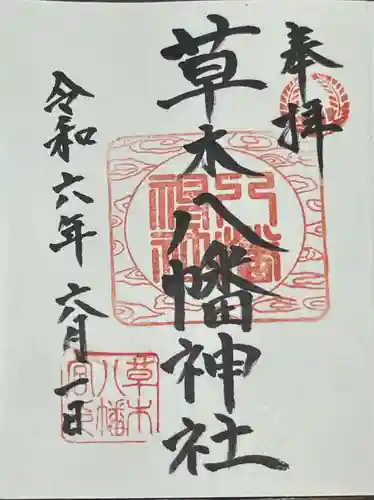 奉拝
草木八幡神社
令和六年六月一日
草木
八幡
宮印